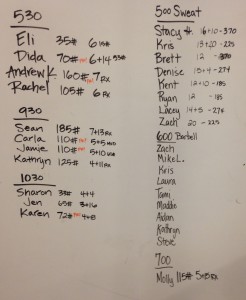 530
Eli 35#
Dida 70#
Andrew K. 160# 7 RX
Rachel 105# 6 RX
930
Sean 185# 7+13 RX
Carla 110# 5+5
Jamie 110# 5+10
Kathryn 125# 4+11 RX
1030
Sharon 4+4
Jen 65# 3+16
Karen 72# 4+8
500 Sweat
Stacy H. 16+10 - 370
Kris 13+20 - 225
Brett 12 -
Denise 13+4 - 274
Kent 12+10 - 185
Ryan 12 - 185
Lacey 14+5 - 274
Zach 20 - 225
600 Barbell
Zach
Mike L.
Kris
Laura
Tami
Maddie
Aidan
Kathryn
Steve
700
Molly 115# 5+15 RX